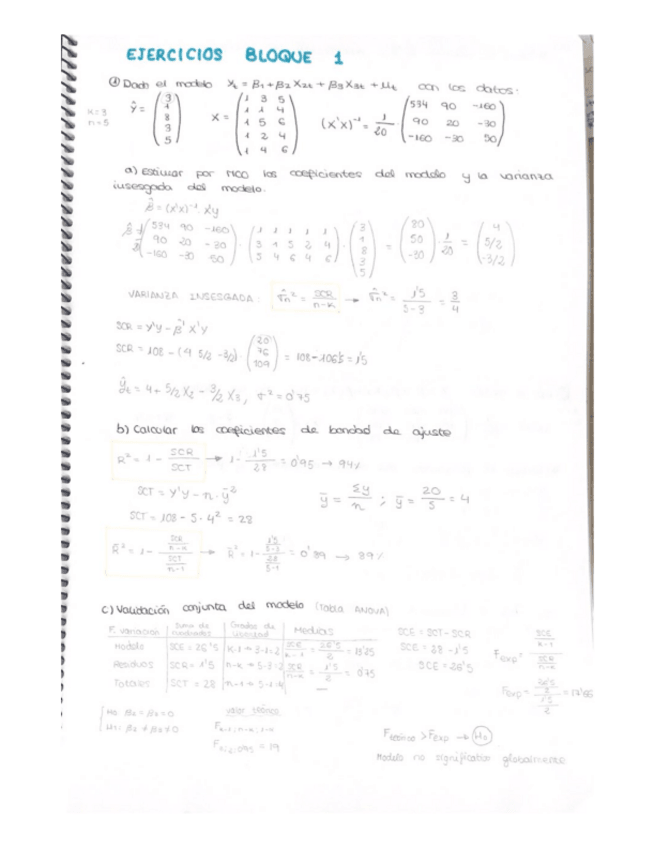 EJERCICIOS BLOQUE 1
① Dado el modelo Yt = β1 + β2X2t + β3X3t + μt con los datos:
k=3
n=5
Ŷ = (3 1 8 3 5) X = (1 3 5
1 1 4
1 5 6
1 2 4
1 4 6) (X'X)⁻¹ = 1/20 · (534 90 -160
90 20 -30
-160 -30 50)
a) Estimar por MCO los coeficientes del modelo y la varianza
insesgada del modelo.
β̂ = (X'X)⁻¹ · X'Y
(534 90 -160
90 20 -30
-160 -30 50) · (1 1 1 1 1
3 1 5 2 4
5 4 6 4 6) · (3 1 8 3 5) = (80 50 -30) · 1/20 = (4 5/2 -3/2)
VARIANZA INSESGADA: σ̂n² = SCR/n-k → σ̂n² = 1'5/5-3 = 3/4
SCR = Y'Y - β̂'X'Y
SCR = 108 - (4 5/2 -3/2) · (20 76 109) = 108 - 106'5 = 1'5
ŷt = 4 + 5/2 X2 - 3/2 X3, σ² = 0'75
b) Calcular los coeficientes de bondad de ajuste
R² = 1 - SCR/SCT → 1 - 1'5/28 = 0'95 → 94%
SCT = Y'Y - n · ȳ² ȳ = Σy/n ; ȳ = 20/5 = 4
SCT = 108 - 5 · 4² = 28
R̄² = 1 - (SCR/n-k)/(SCT/n-1) → R̄² = 1 - (1'5/5-3)/(28/5-1) = 0'89 → 89%
c) Validación conjunta del modelo (tabla ANOVA)
F. variación | Suma de cuadrados | Grados de libertad | Medias
Modelo | SCE = 26'5 | k-1 → 3-1=2 | SCE/k-1 = 26'5/2 = 13'25
Residuos | SCR = 1'5 | n-k → 5-3=2 | SCR/n-k = 1'5/2 = 0'75
Totales | SCT = 28 | n-1 → 5-1=4
SCE = SCT - SCR
SCE = 28 - 1'5
SCE = 26'5
Fexp = (SCE/k-1)/(SCR/n-k)
Fexp = (26'5/2)/(1'5/2) = 17'66
H0: β2 = β3 = 0
H1: β2 ≠ β3 ≠ 0
valor teórico
Fk-1; n-k; 1-α
F2;2;0'95 = 19
Fteórico > Fexp → H0
Modelo no significativo globalmente